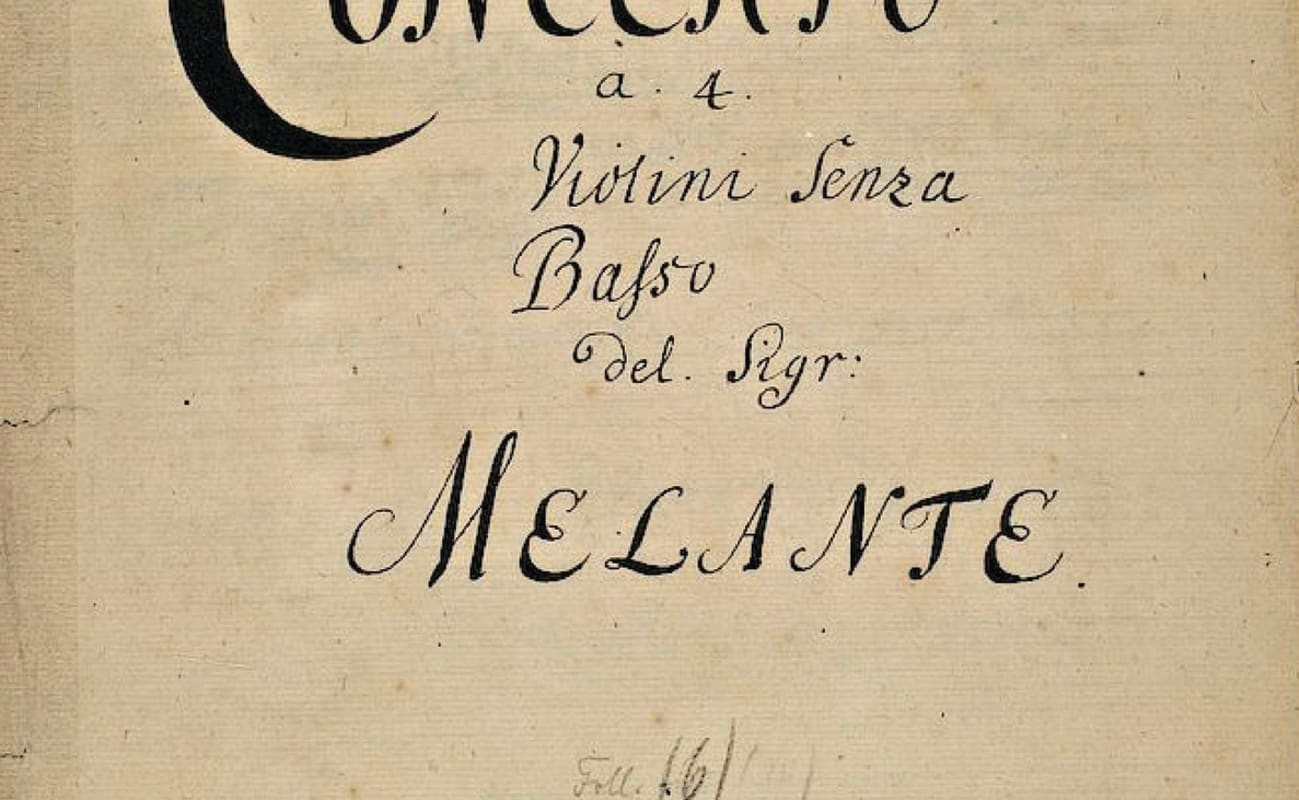 CONCERTO
a. 4.
Violini Senza
Baſso
del. Sigr:
MELANTE.
Foll. 6